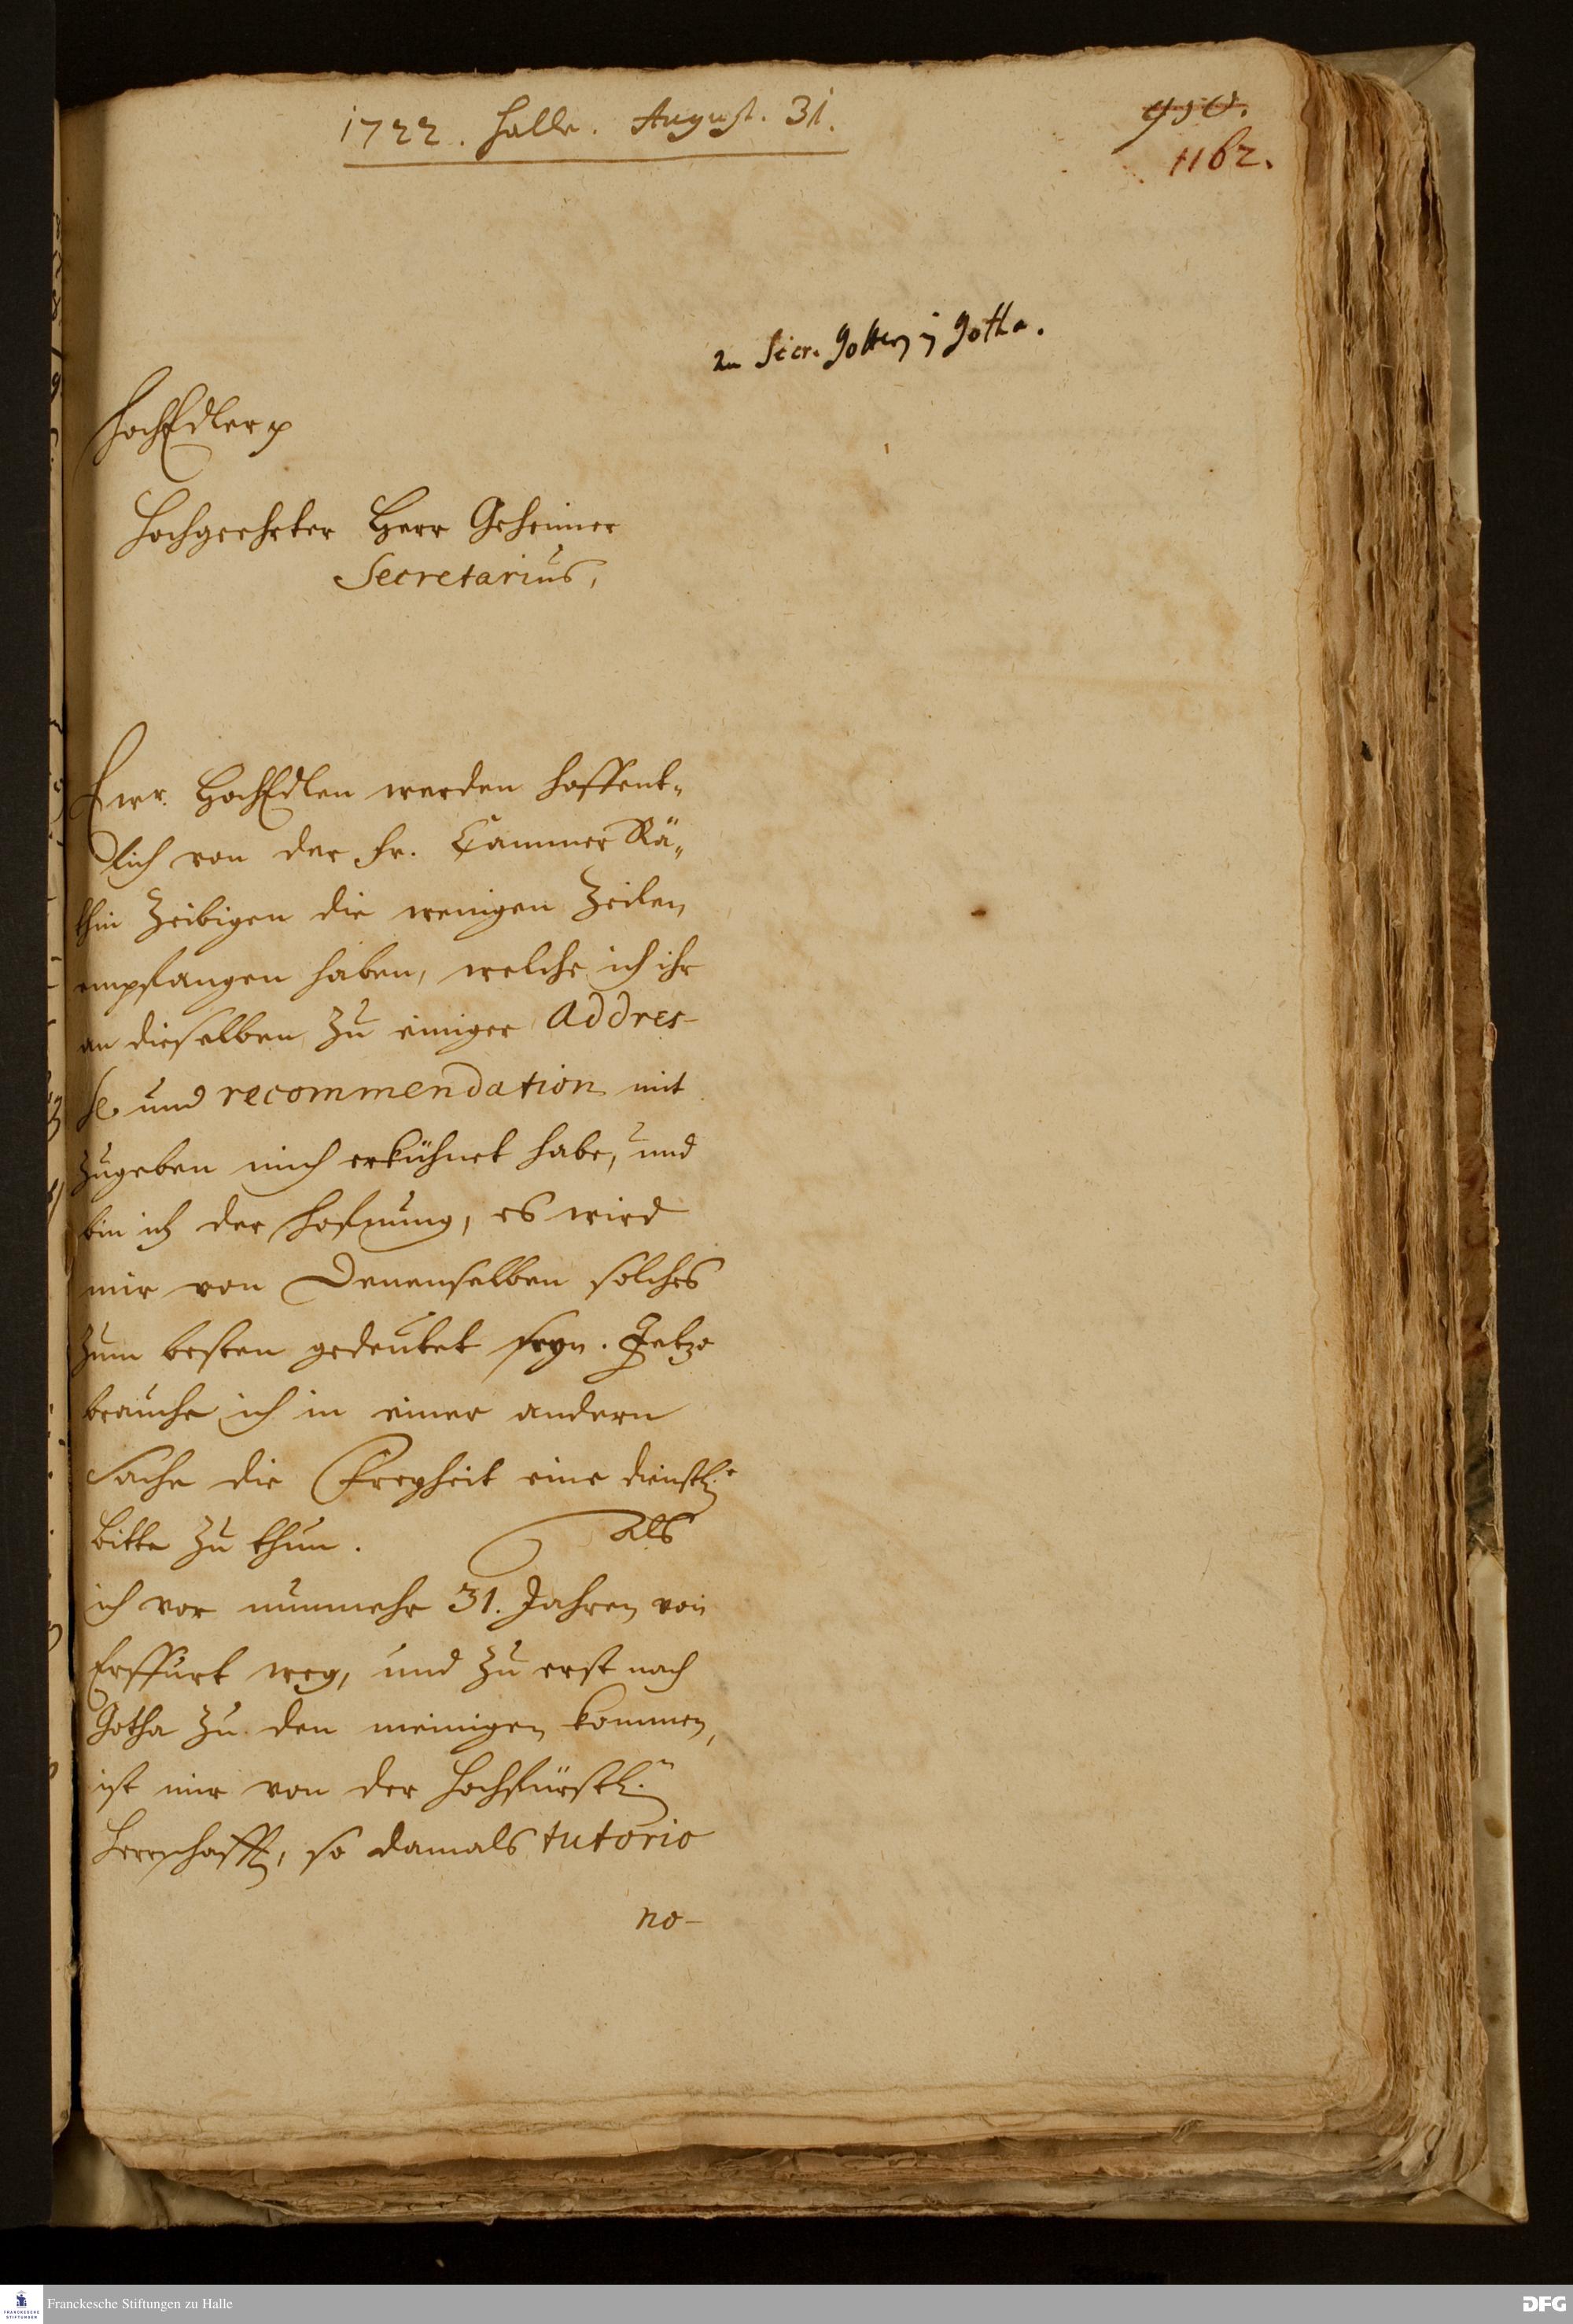 1722. Halle. August. 31.
1162.
An Secr. Gottern in Gotha.
HochEdler p
Hochgeehrter Herr Geheimer
Secretarius,
Ewr. HochEdlen werden hoffent-
lich von der Fr. Cammer Rä-
thin Zeibigen die wenigen Zeilen
empfangen haben, welche ich ihr
an dieselben zu einiger Addres-
se und recommendation mit
zugeben mich erkühnet habe, und
bin ich der Hofnung, es wird
mir von Denenselben solches
zum besten gedeutet seyn. Jetzo
brauche ich in einer andern
Sache die Freyheit eine dienstl.e
bitte zu thun. Als
ich vor nunmehr 31. Jahren von
Erffurt weg, und zu erst nach
Gotha zu den meinigen kommen,
ist mir von der Hochfürstl.n
Herrschafft, so damals tutorio
no-
Franckesche Stiftungen zu Halle
DFG